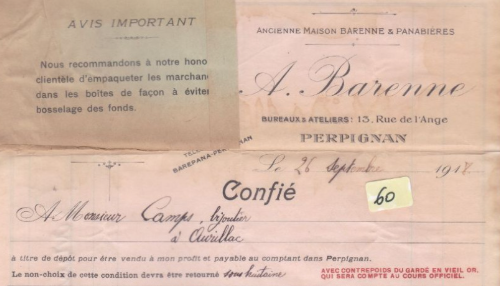 AVIS IMPORTANT
Nous recommandons à notre hono
clientèle d'empaqueter les marchan
dans les boîtes de façon à éviter
bosselage des fonds.
ANCIENNE MAISON BARENNE & PANABIÈRES
A. Barenne
BUREAUX & ATELIERS : 13, Rue de l'Ange
PERPIGNAN
BAREPANA-PERPIGNAN
Le 26 Septembre 1917
Confié
60
A Monsieur Camps, bijoutier
à Aurillac
à titre de dépôt pour être vendu à mon profit et payable au comptant dans Perpignan.
Le non-choix de cette condition devra être retourné sous huitaine
AVEC CONTREPOIDS DU GARDÉ EN VIEIL OR,
QUI SERA COMPTÉ AU COURS OFFICIEL.